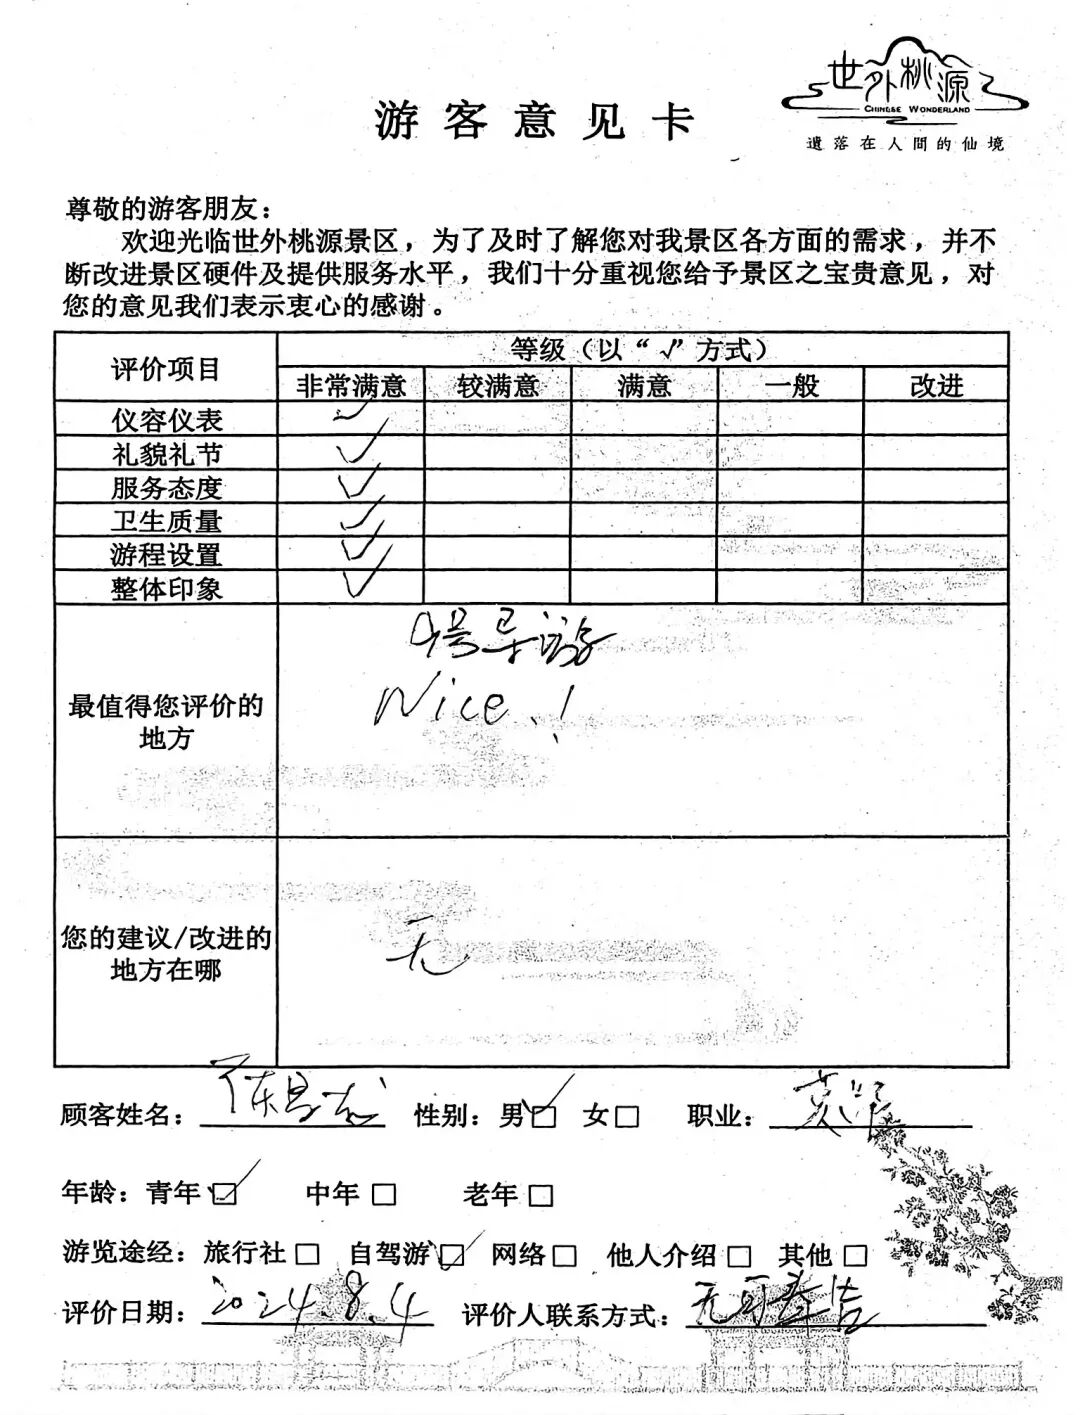 世外桃源
CHINESE WONDERLAND
遺落在人間的仙境
游客意见卡
尊敬的游客朋友：
欢迎光临世外桃源景区，为了及时了解您对我景区各方面的需求，并不
断改进景区硬件及提供服务水平，我们十分重视您给予景区之宝贵意见，对
您的意见我们表示衷心的感谢。
评价项目 等级（以“√”方式）
非常满意 较满意 满意 一般 改进
仪容仪表 ✓
礼貌礼节 ✓
服务态度 ✓
卫生质量 ✓
游程设置 ✓
整体印象 ✓
9号导游
Nice！
最值得您评价的
地方
无
您的建议/改进的
地方在哪
顾客姓名： 性别：男☑ 女□ 职业：
年龄：青年☑ 中年□ 老年□
游览途经：旅行社□ 自驾游☑ 网络□ 他人介绍□ 其他□
评价日期：2024.8.4 评价人联系方式：无可奉告